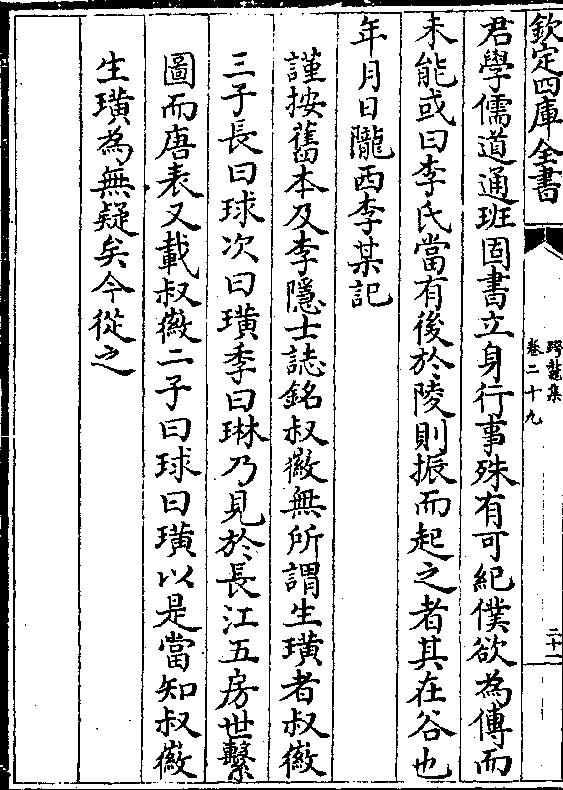 欽定四庫全書
跨鼇集
卷二十九
二十一
君學儒道通班固書立身行事殊有可紀僕欲為傳而
未能或曰李氏當有後於陵則振而起之者其在谷也
年月日隴西李某記
謹按舊本及李隱士誌銘叔徽無所謂生璜者叔徽
三子長曰球次曰璜季曰琳乃見於長江五房世繫
圖而唐表又載叔徽二子曰球曰璜以是當知叔徽
生璜為無疑矣今從之